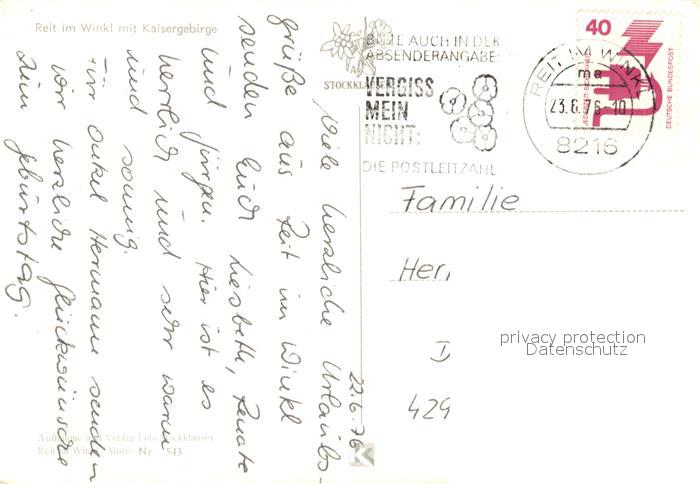 Reit im Winkl mit Kaisergebirge
22.6.76
Viele herzliche Urlaubs-
grüße aus Reit im Winkl
senden Euch Liesbeth, Renate
und Jürgen. Hier ist es
herrlich und sehr warm
und sonnig.
Für Onkel Hermann senden
wir herzliche Glückwünsche
zum Geburtstag.
Aufnahme und Verlag Foto Stockklauser
Reit im Winkl Motiv Nr. 543
STOCKKLAUSER
BITTE AUCH IN DER
ABSENDERANGABE:
VERGISS
MEIN
NICHT:
DIE POSTLEITZAHL
REIT IM WINKL
ma
23.6.76-10
8216
40
JEDERZEIT SICHERHEIT
DEUTSCHE BUNDESPOST
Familie
Her
D
429
privacy protection
Datenschutz